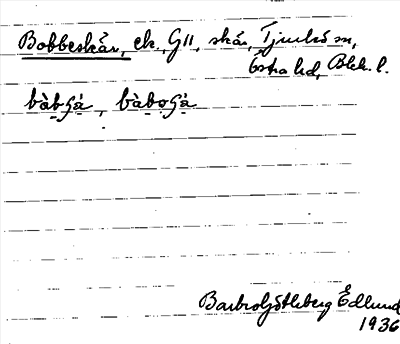 Bobbeskär, ek. G11, skär, Tjurkö sn,
Östra hd, Blek. l.
bàbʂá, bàbo̱ʂá
Barbro Götlberg Edlund
1936